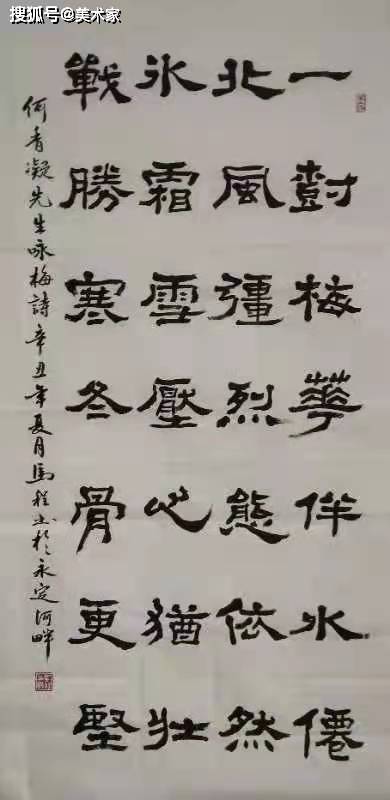 搜狐号@美术家
一尌梅華伴水僊
北風彊烈態依然
氷霜雪壓心猶壯
戰勝寒冬骨更堅
何香凝先生咏梅詩辛丑年夏月馬程书於永定河畔